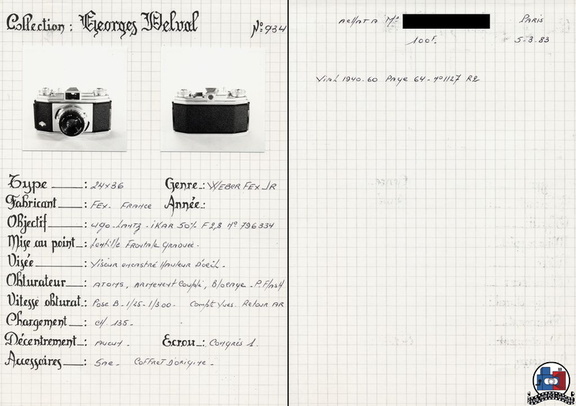 Collection : Georges Delval N° 934
Type : 24x36 Genre : WEBER FEX JR
Fabricant : FEX. FRANCE Année :
Objectif : Ugo. Lantz - iKAR 50% F 2,8 n° 796334
Mise au point : lentille Frontale
Visée : Viseur encastré Hauteur D'oeil.
Obturateur : ATOMS, ARMEMENT Couplé, Blocage. P. Flash
Vitesse obturat. : Pose B. 1/25-1/300. Compt Vues. Retour AR
Chargement : CH 135.
Décentrement : Aucun. Ecrou : Congrès 1.
Accessoires : Coffret D'origine.
achat a Mr PARIS
100f. 5-3.83
Vial 1940.60 Page 64 - n°1127 RE